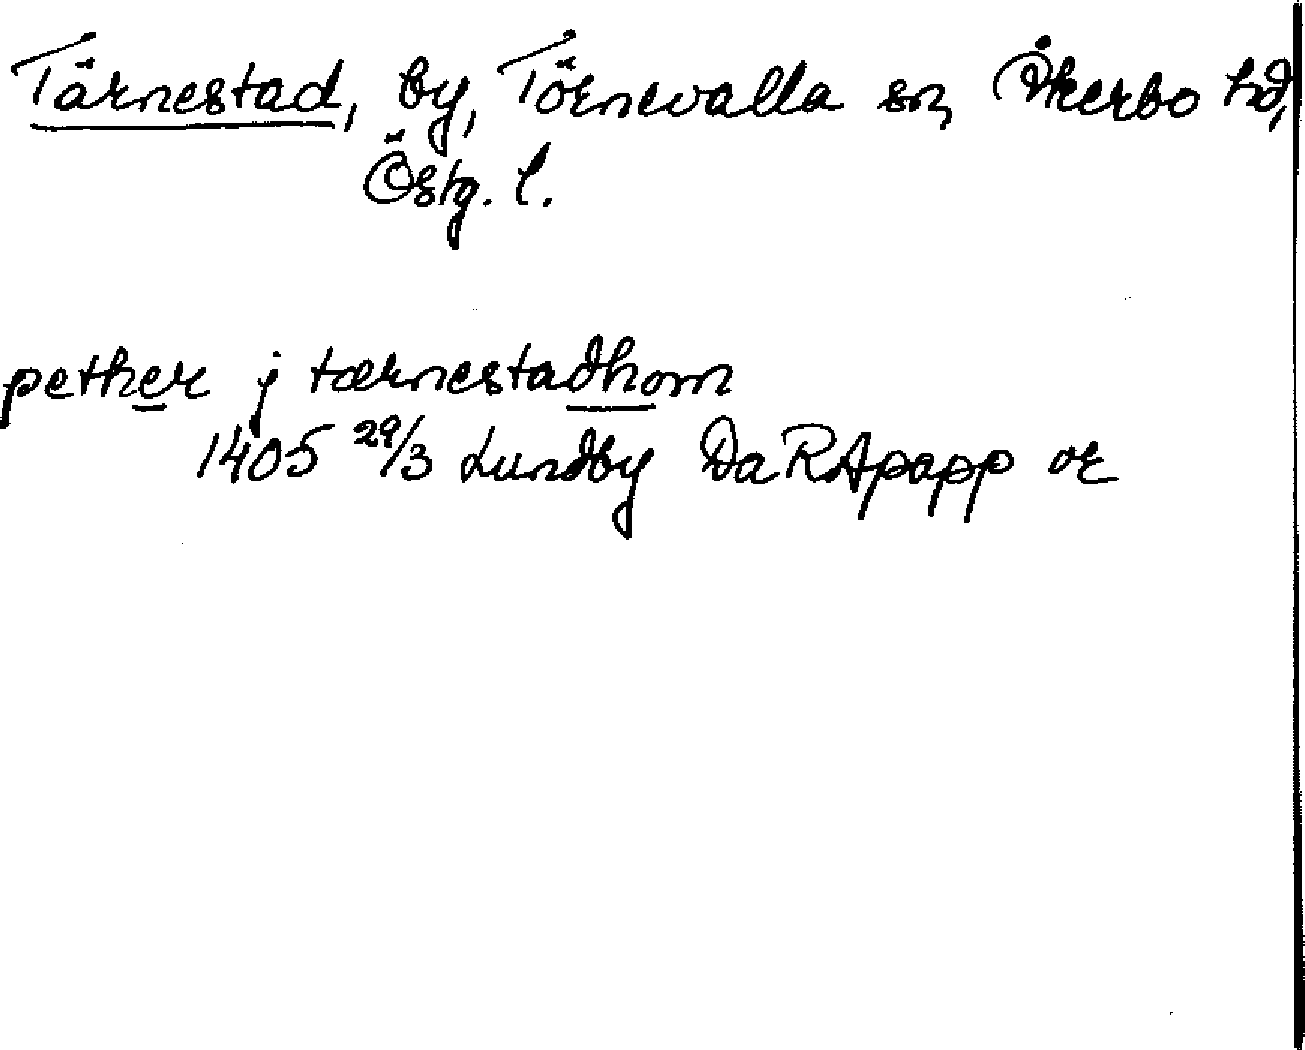 Tärnestad, by, Törnevalla sn, Åkerbo hd,
Östg. l.
pether j tærnestadhom
1405 29/3 Lundby DaRApapp or